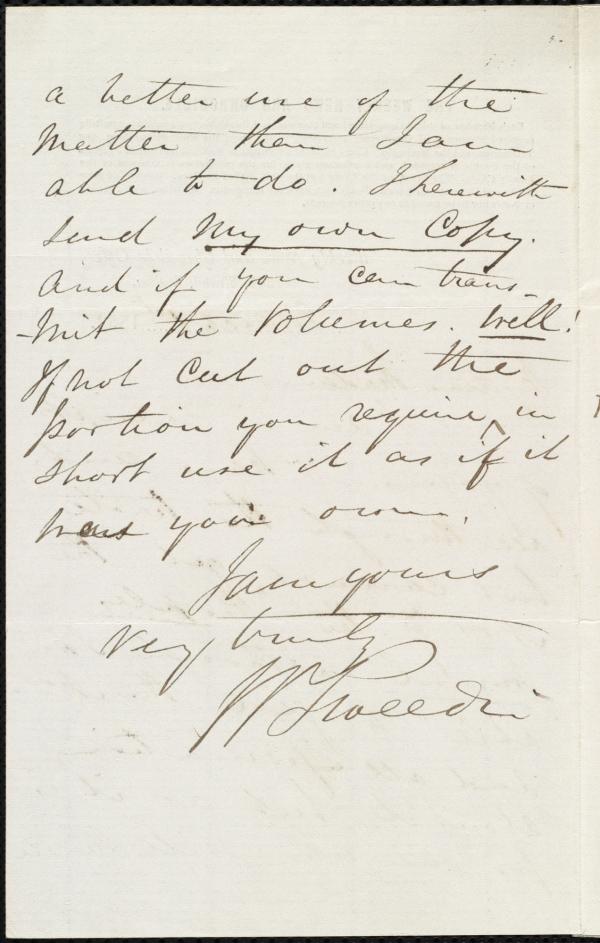 a better use of the
matter than I am
able to do. I herewith
send my own Copy.
And if you can trans-
-mit the Volumes. well!
If not Cut out the
portion you require, in
short use it as if it
was your own.
I am yours
Very truly